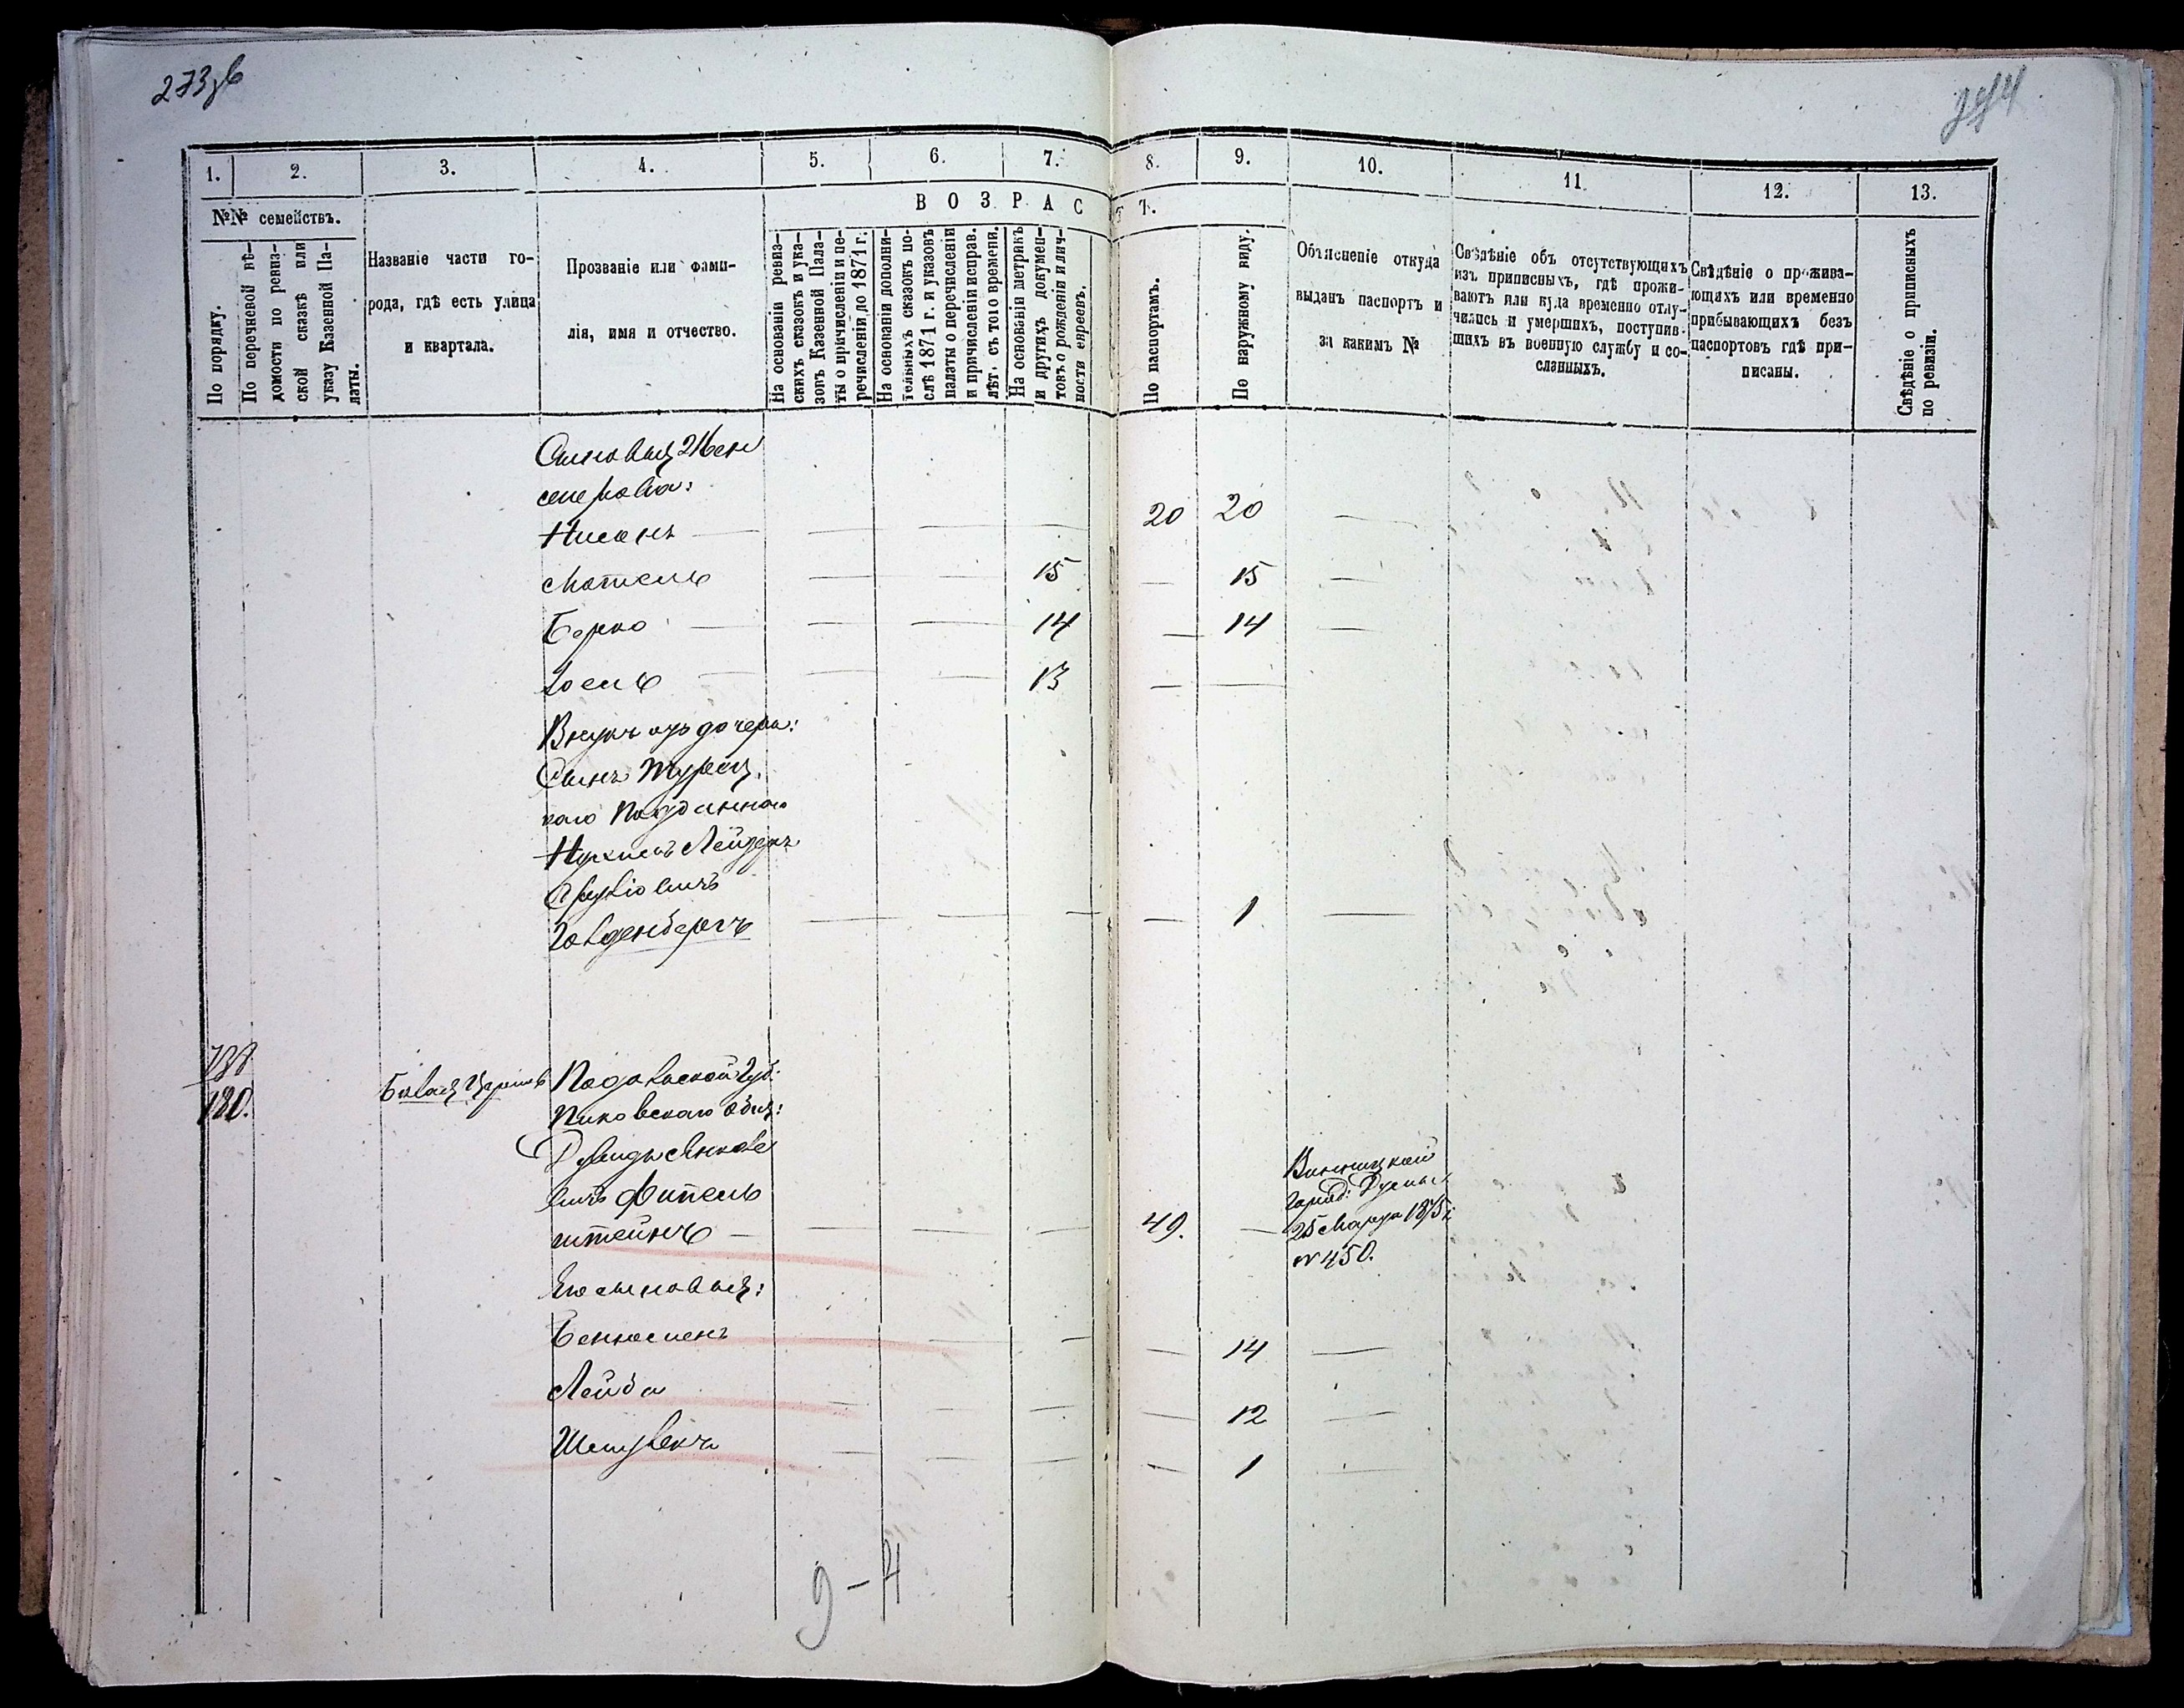 273об
274
1. 2. 3. 4. 5. 6. 7. 8. 9. 10. 11. 12. 13.
№№ семействъ.
По порядку.
По перечневой вѣ-
домости по ревиз-
ской сказкѣ или
указу Казенной Па-
латы.
Названіе части го-
рода, гдѣ есть улица
и квартала.
Прозваніе или фами-
лія, имя и отчество.
ВОЗРАСТ
7.
На основаніи ревиз-
скихъ сказокъ и ука-
зовъ Казенной Пала-
ты о причисленіи и пе-
речисленіи до 1871 г.
На основаніи дополни-
тельныхъ сказокъ по-
слѣ 1871 г. и указовъ
палаты о перечисленіи
и причисленіи исправ.
лѣт. съ того времени.
На основаніи метрикъ
и другихъ докумен-
товъ о рожденіи и лич-
ности евреевъ.
По паспортамъ.
По наружному виду.
Объясненіе откуда
выданъ паспортъ и
за какимъ №
Свѣдѣніе объ отсутствующихъ
изъ приписныхъ, гдѣ прожи-
ваютъ или куда временно отлу-
чились и умершихъ, поступив-
шихъ въ военную службу и со-
сланныхъ.
Свѣдѣніе о прожива-
ющихъ или временно
прибывающихъ безъ
паспортовъ гдѣ при-
писаны.
Свѣдѣніе о приписныхъ
по ревизіи.
Сыновья
Нисонъ — — — — 20 20 —
Мотель — — 15 — 15 —
Берко — — — 14 — 14 —
Іосель — — — 13 — —
Внукъ изъ дочери:
Сынъ Турец.
каго Подданнаго
Лейзеръ
Голденбергъ — — — — 1 —
180.
Бѣлая Церковь Подольской Губ:
Пиковскаго общ:
Фитель
штейнъ — — — — 49. —
Винницкой
25 Марта 1875 г.
№ 450.
Его сыновья:
Беньюминъ — — — 14 —
Лейба — — — — 12 —
Шмулекъ — — — — 1 —
9-4